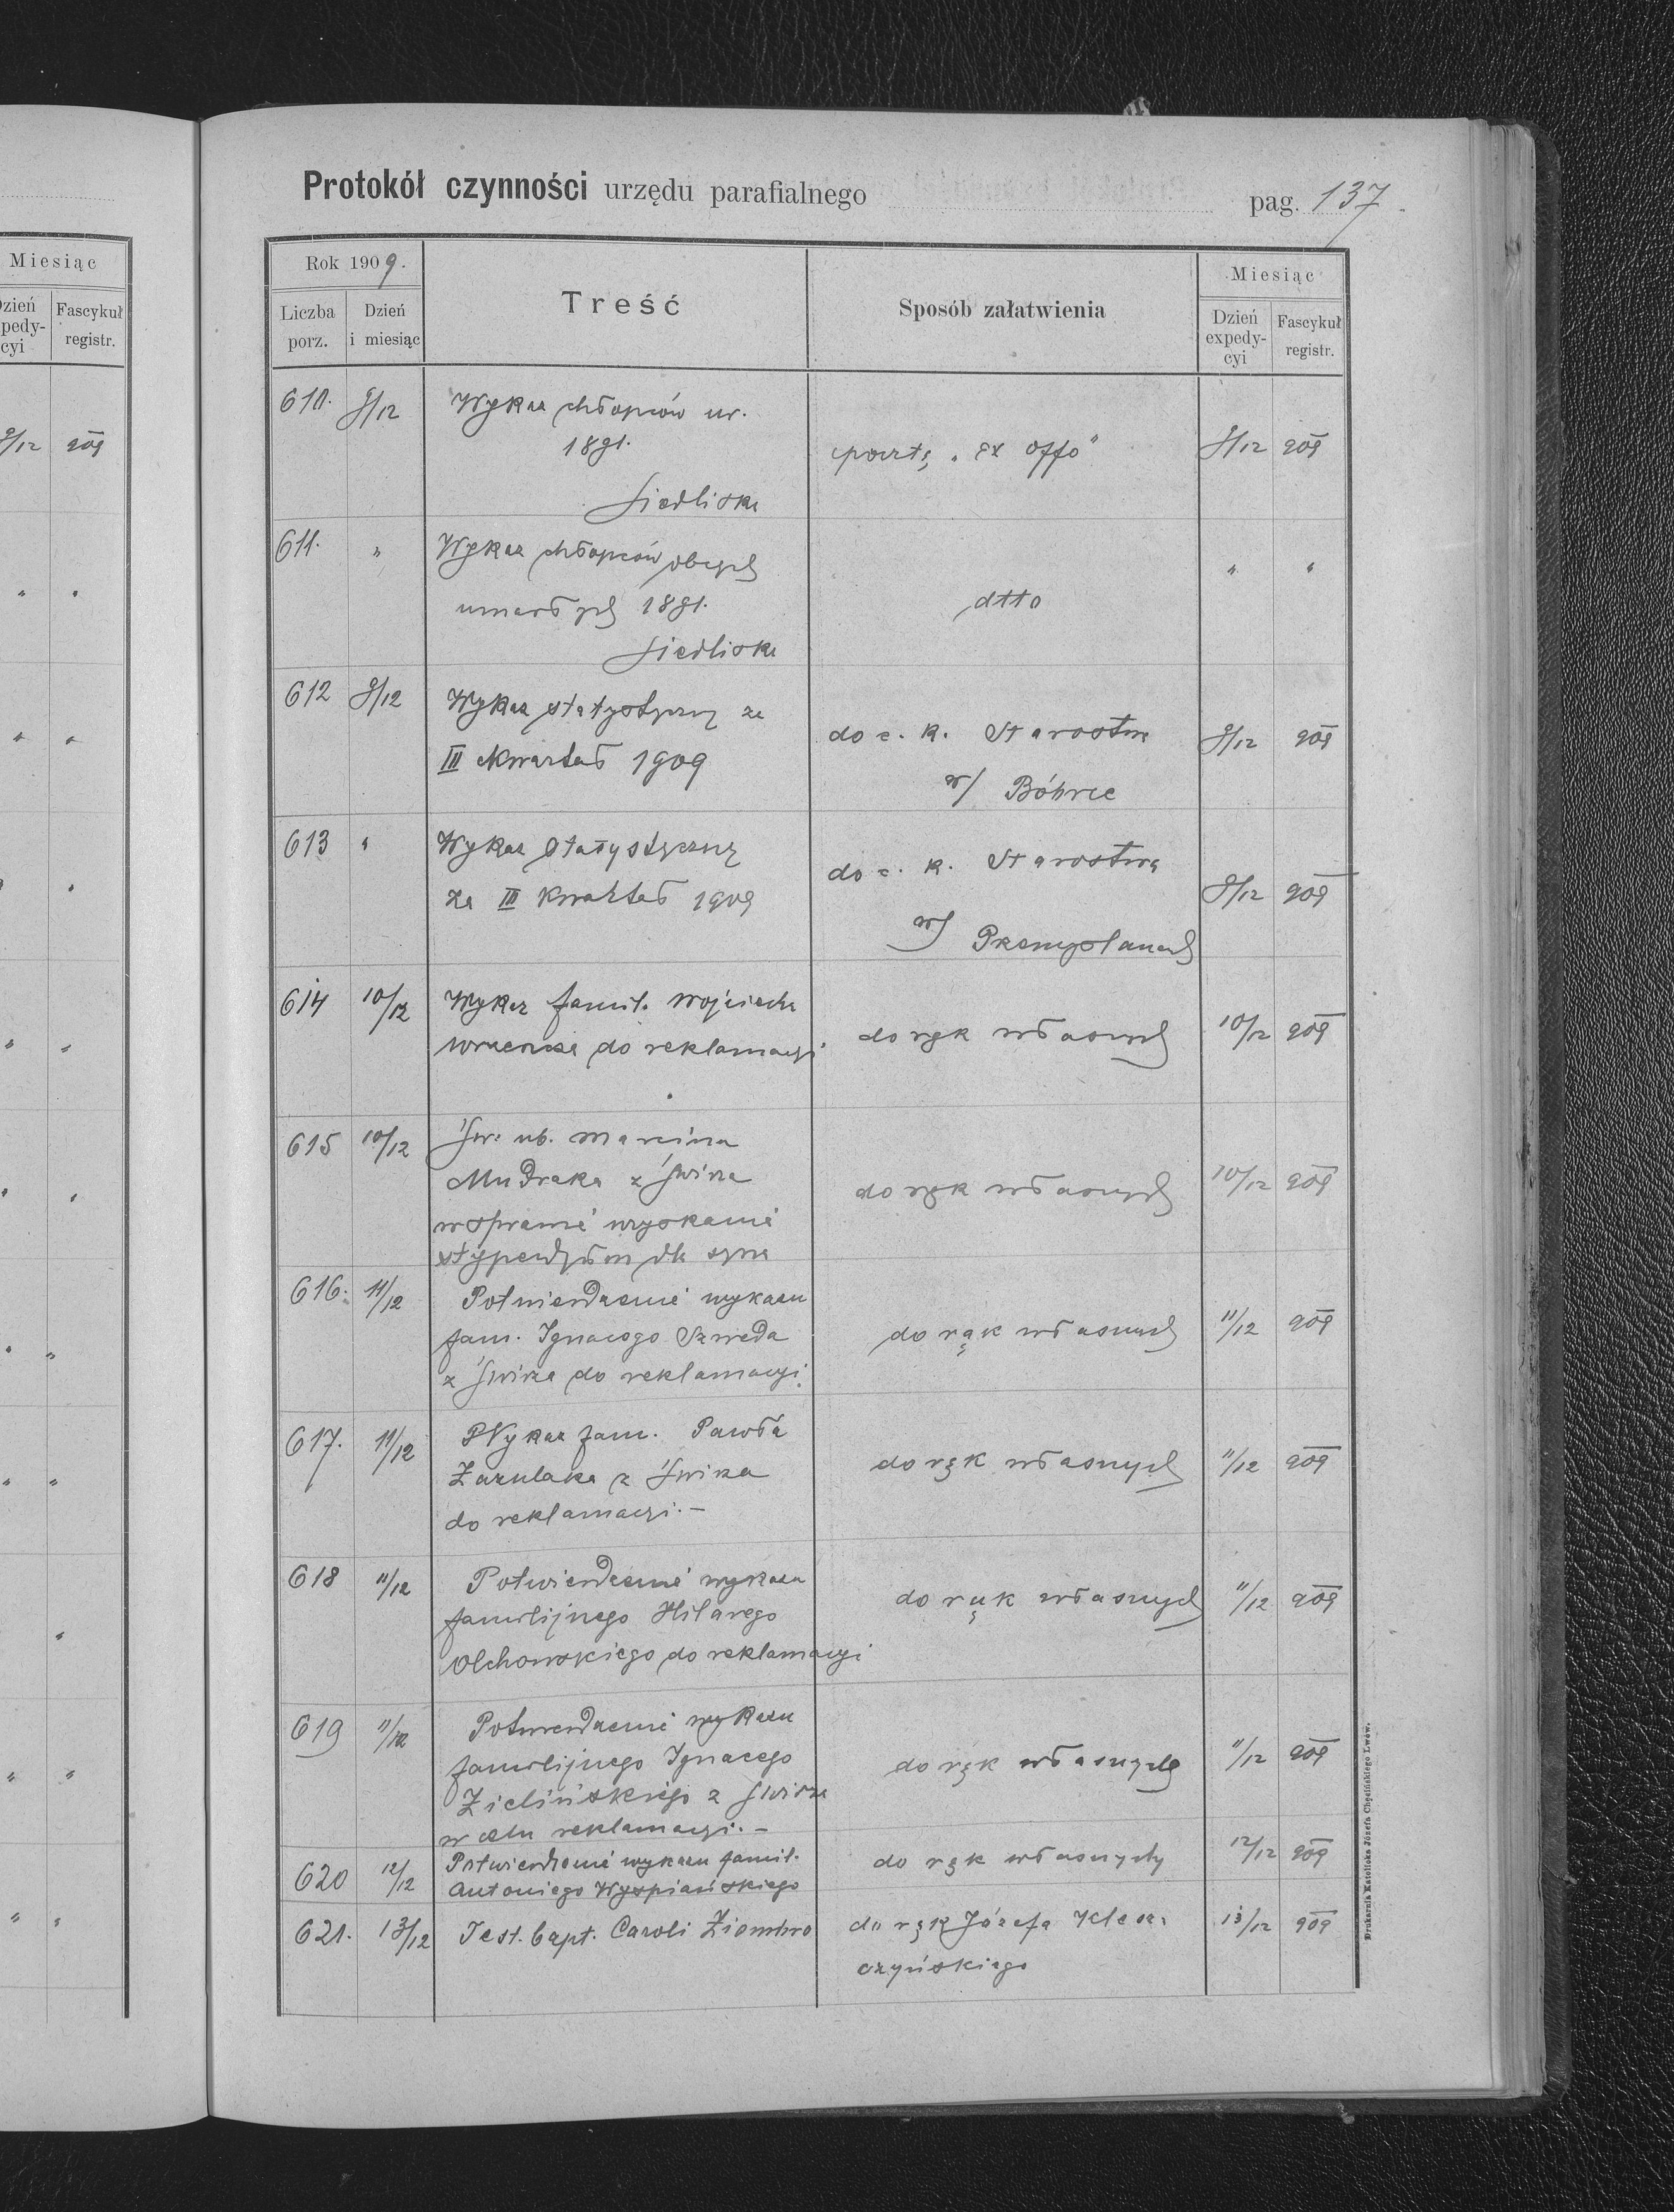 Miesiąc
Dzień
expedy-
cyi
Fascykuł
registr.
9/12 909
Protokół czynności urzędu parafialnego pag. 137
Rok 1909.
Liczba
porz.
Dzień
i miesiąc
Treść
Sposób załatwienia
Miesiąc
Dzień
expedy-
cyi
Fascykuł
registr.
610. 9/12 Wykaz chłopców ur.
1891. pocztą „ex offo" 9/12 909
Siedliska
611. " Wykaz chłopców obcych " "
umarłych 1891. dtto
Siedliska
612 9/12 Wykaz statystyczny za
III Kwartał 1909
do c. k. Starostwa
w/ Bóbrce
9/12 909
613 " Wykaz statystyczny
za III kwartał 1909
do c. k. Starostwa
w/ Przemyślanach
9/12 909
614 10/12 Wykaz famil. Wojciecha
do reklamacyi
do rąk własnych 10/12 909
615 10/12 Św. ub. Marcina
Mudraka z Świrza
w sprawie uzyskania
stypendyum dla syna
do rąk własnych 10/12 909
616. 11/12 Potwierdzenie wykazu
fam. Ignacego Szweda
z Świrza do reklamacyi.
do rąk własnych 11/12 909
617. 11/12 Wykaz fam. Pawła
Zazulaka z Świrza
do reklamacyi. —
do rąk własnych 11/12 909
618 11/12 Potwierdzenie wykazu
familijnego Hilarego
Olchowskiego do reklamacyi
do rąk własnych 11/12 909
619 11/12 Potwierdzenie wykazu
familijnego Ignacego
Zielińskiego z Świrza
w celu reklamacyi. —
do rąk własnych 11/12 909
620 12/12 Potwierdzenie wykazu famil.
Antoniego Wyspiańskiego
do rąk własnych 12/12 909
621. 13/12 Test. bapt. Caroli Ziombro
do rąk Józefa Klesz-
czyńskiego
13/12 909
Drukarnia Katolicka Józefa Chęcińskiego Lwów.